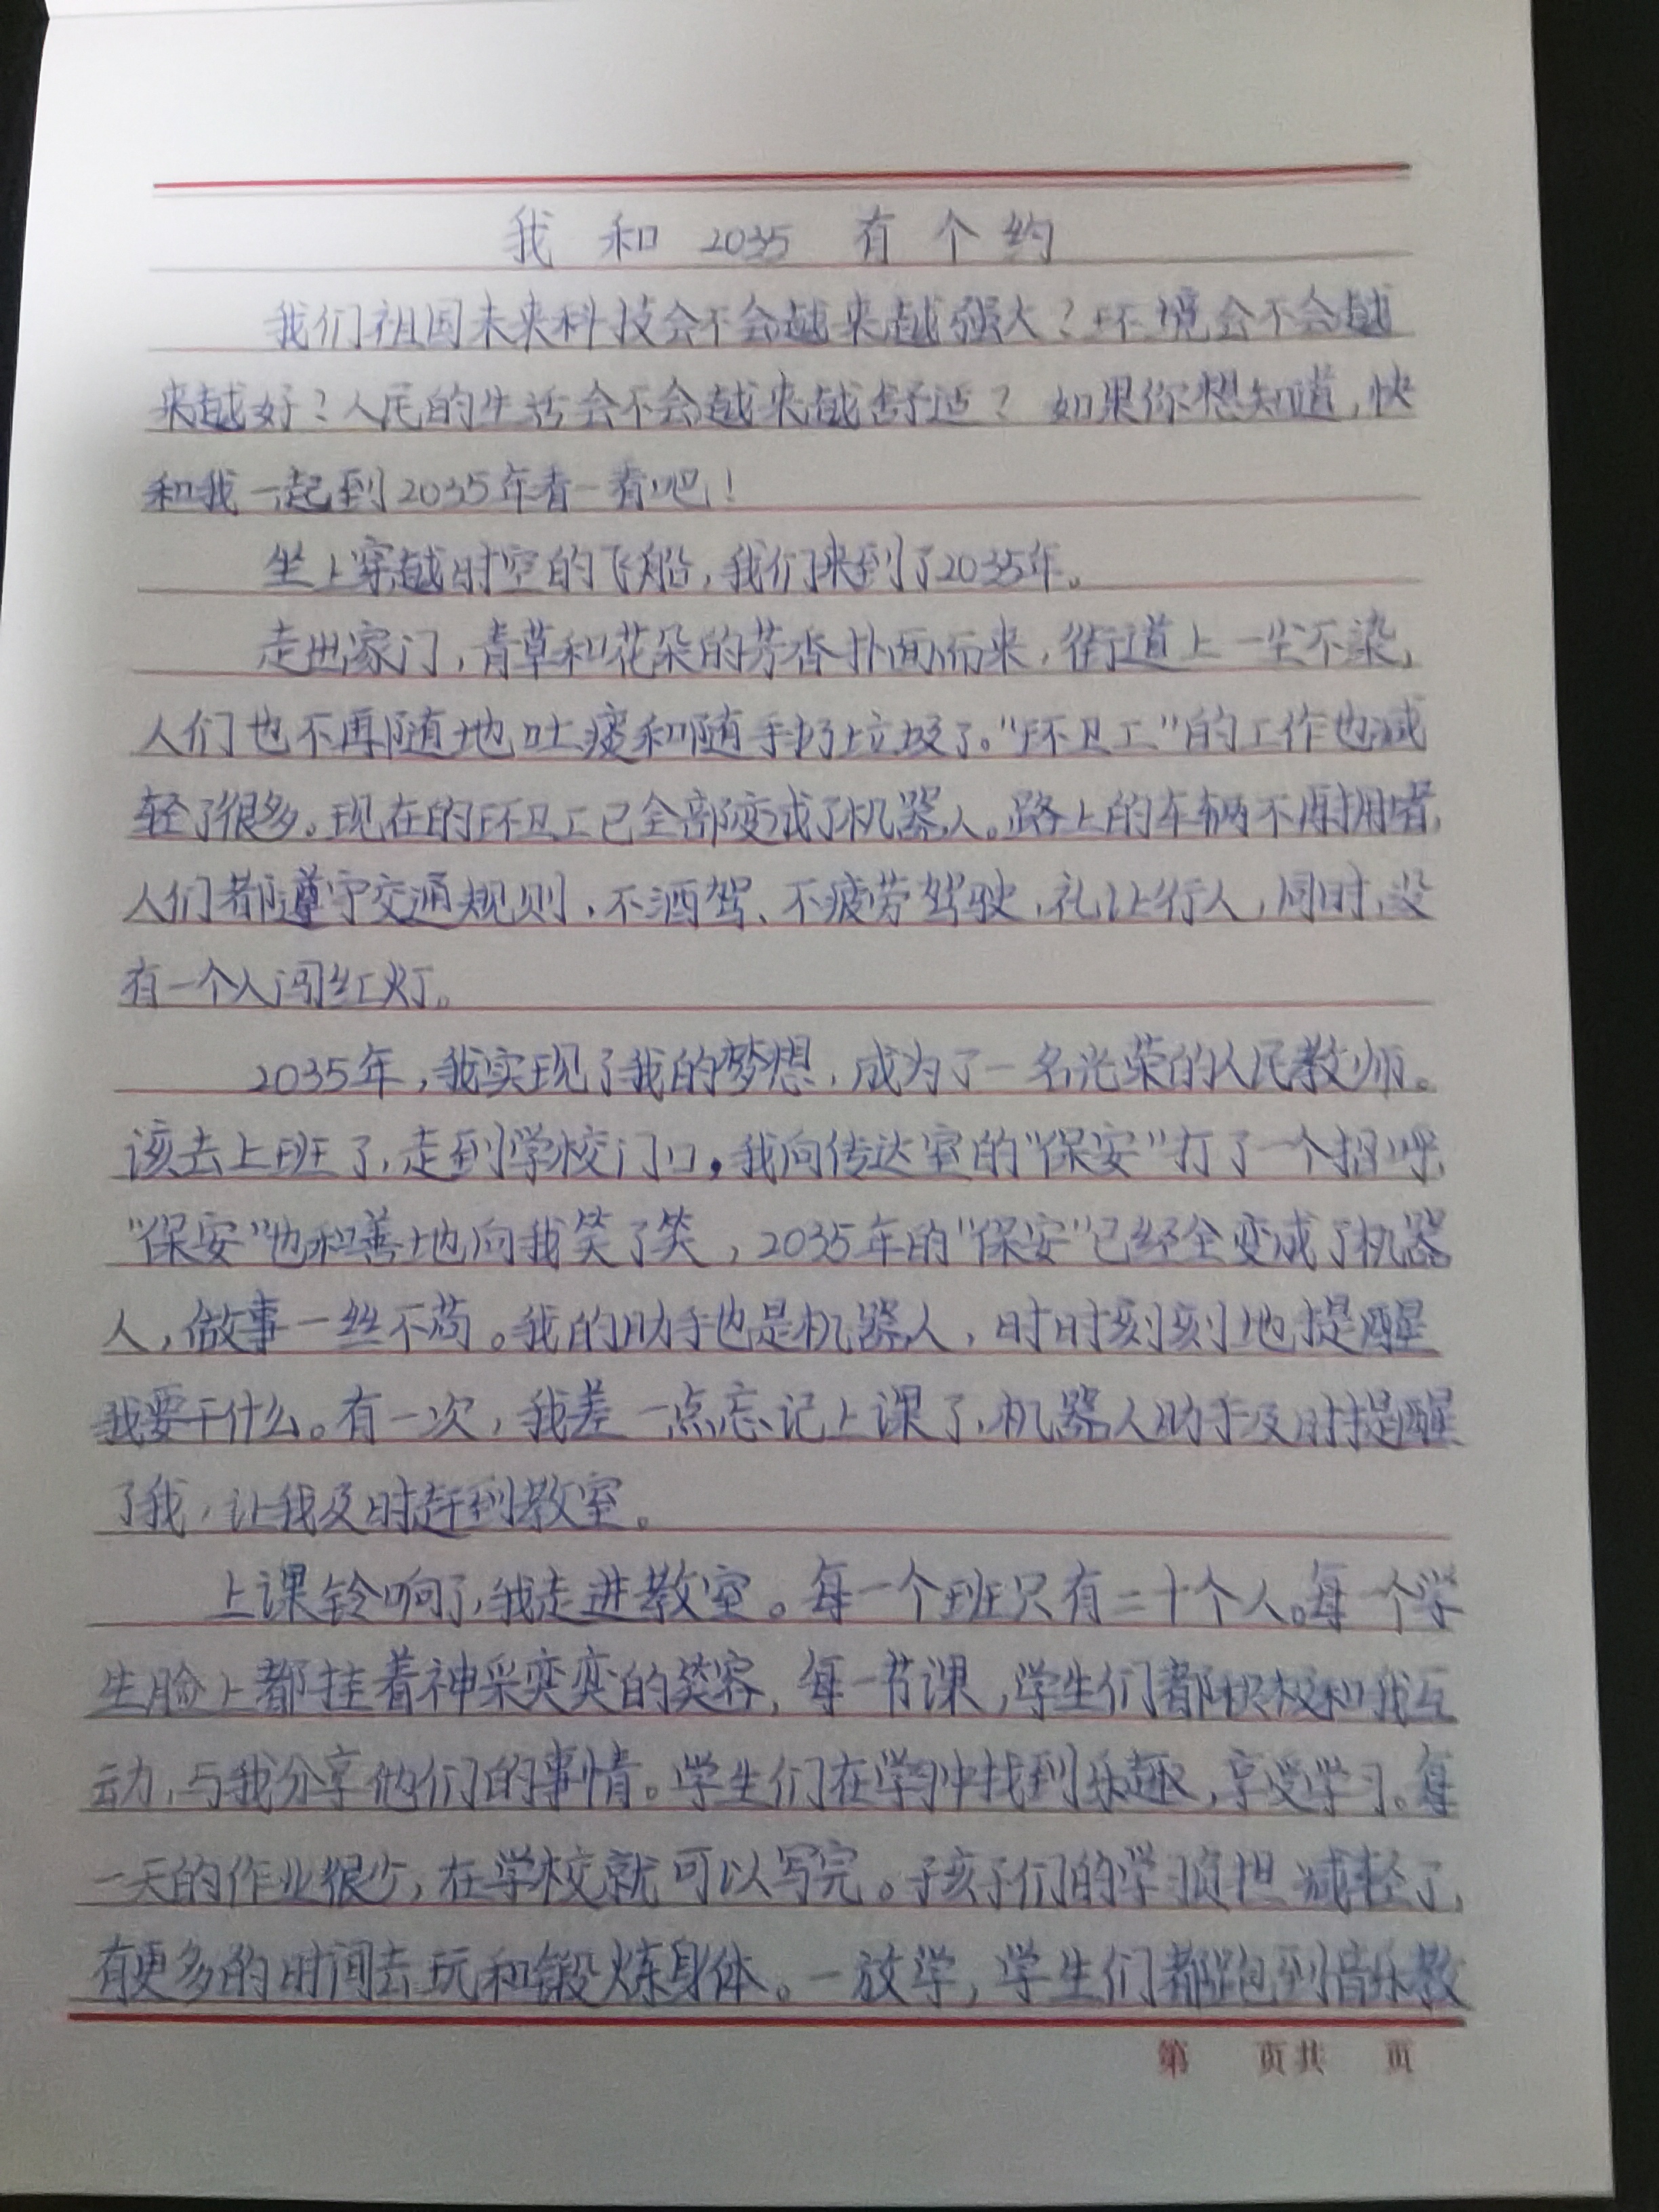 我和2035有个约
我们祖国未来科技会不会越来越强大?环境会不会越
来越好?人民的生活会不会越来越舒适?如果你想知道,快
和我一起到2035年看一看吧!
坐上穿越时空的飞船,我们来到了2035年。
走出家门,青草和花朵的芳香扑面而来,街道上一尘不染,
人们也不再随地吐痰和随手扔垃圾了。“环卫工”的工作也减
轻了很多。现在的环卫工已全部变成了机器人。路上的车辆不再拥堵,
人们都遵守交通规则,不酒驾、不疲劳驾驶,礼让行人,同时,没
有一个人闯红灯。
2035年,我实现了我的梦想,成为了一名光荣的人民教师。
该去上班了,走到学校门口,我向传达室的“保安”打了一个招呼,
“保安”也和善地向我笑了笑,2035年的“保安”已经全变成了机器
人,做事一丝不苟。我的助手也是机器人,时时刻刻地提醒
我要干什么。有一次,我差一点忘记上课了,机器人助手及时提醒
了我,让我及时赶到教室。
上课铃响了,我走进教室。每一个班只有二十个人。每一个学
生脸上都挂着神采奕奕的笑容,每一节课,学生们都积极和我互
动,与我分享他们的事情。学生们在学习中找到乐趣,享受学习。每
一天的作业很少,在学校就可以写完。孩子们的学习负担减轻了,
有更多的时间去玩和锻炼身体。一放学,学生们都跑到音乐教
第 页共 页